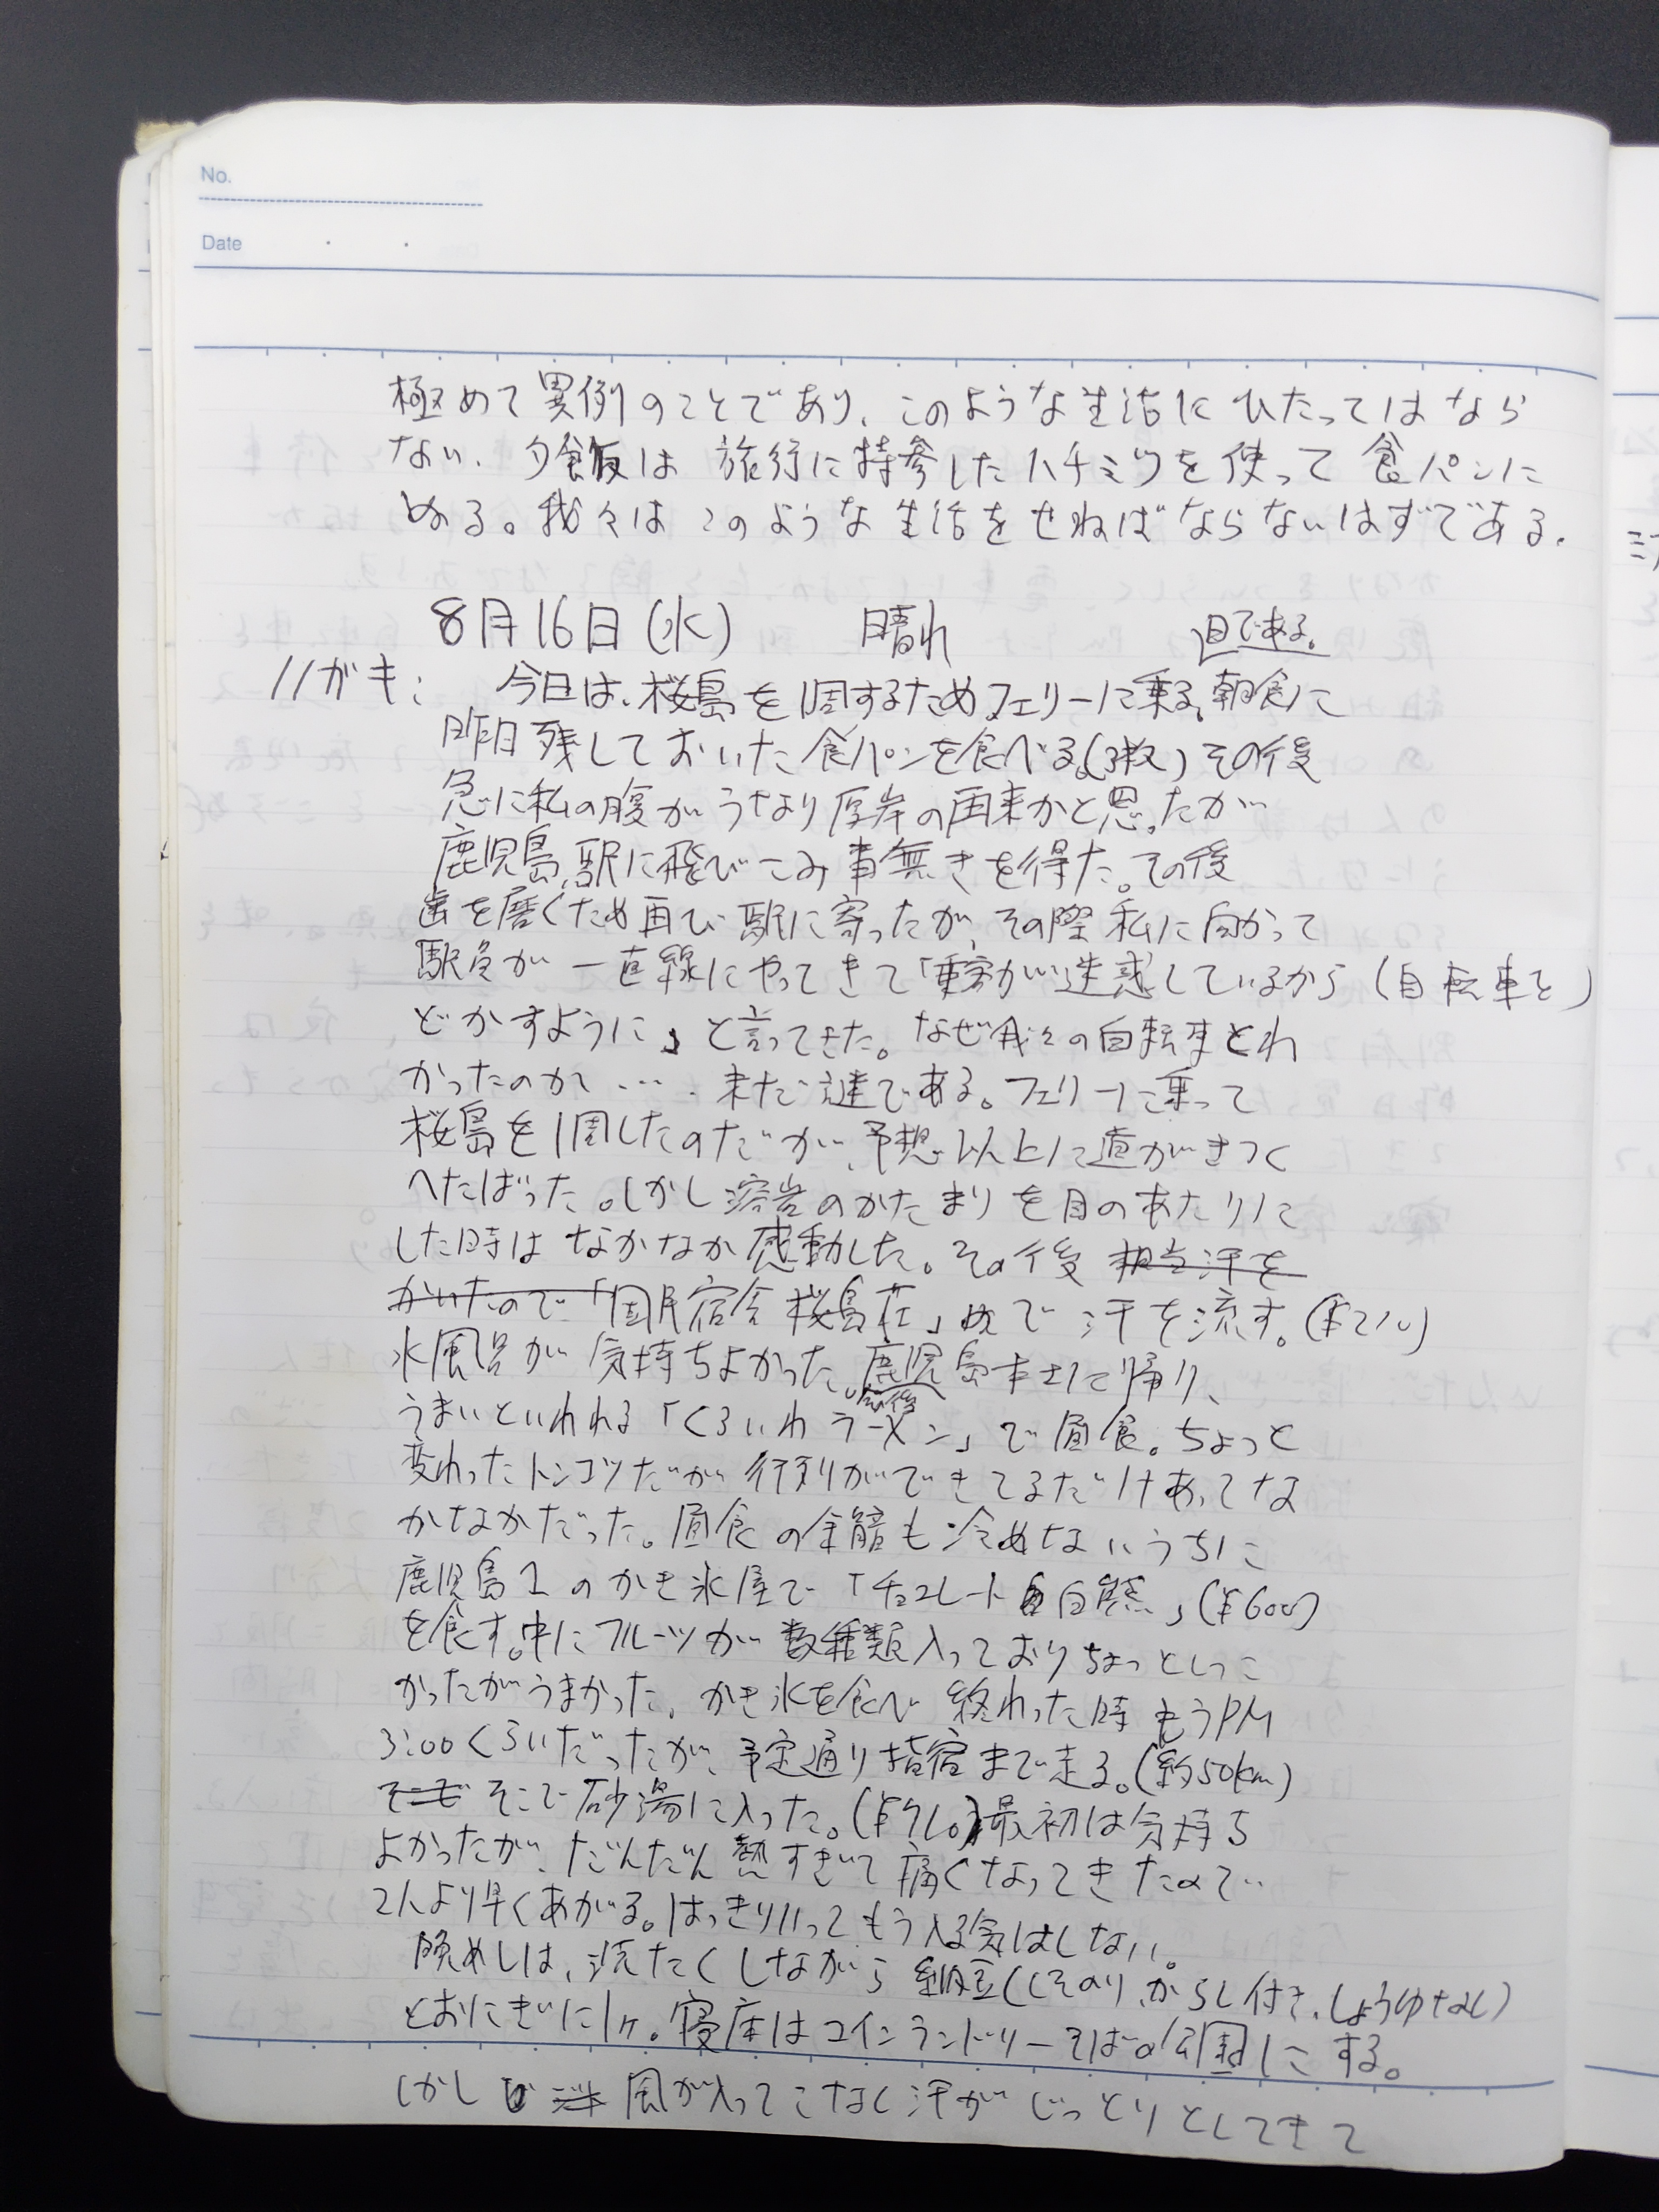 No.
Date
極めて異例のことであり、このような生活にひたってはなら
ない。夕飯は旅行に持参したハチミツを使って食パンに
ぬる。我々はこのような生活をせねばならないはずである。
8月16日(水) 晴れ
日である。
今日は、桜島を1周するため、フェリーに乗る。朝食に
昨日残しておいた食パンを食べる。(3枚)その後
急に私の腹がうなり厚岸の再来かと思ったが
鹿児島駅に飛びこみ事無きを得た。その後
歯を磨くため再び駅に寄ったが、その際私に向かって
駅員が一直線にやってきて「乗客が迷惑しているから(自転車を)
どかすように」と言ってきた。なぜ我々の自転車とわ
かったのか…. 未だ謎である。フェリーに乗って
桜島を1周したのだが、予想以上に道がきつく
へたばった。しかし溶岩のかたまりを目のあたりに
した時はなかなか感動した。その後 相当汗を
かいたので「国民宿舎桜島荘」で汗を流す。
水風呂が気持ちよかった。鹿児島本土に帰り、
その後
うまいといわれる「くろいわラーメン」で昼食。ちょっと
変わったトンコツだが行列ができてるだけあってな
かなかだった。昼食の余韻も冷めないうちに
鹿児島1のかき氷屋で「チョコレート白熊」(¥600)
を食す。中にフルーツが数種類入っておりちょっとしつこ
かったがうまかった。かき氷を食べ終わった時もうPM
3:00くらいだったが、予定通り指宿まで走る。(約50km)
そこで そこで砂湯に入った。最初は気持ち
よかったが、だんだん熱すぎて痛くなってきたので
2人より早くあがる。はっきりいってもう入る気はしない。
晩めしは、洗たくしながら納豆(しそのり、からし付き、しょうゆなし)
とおにぎりに1ヶ。寝床はコインランドリーそばの公園にする。
しかし 風が入ってこなく汗がじっとりとしてきて